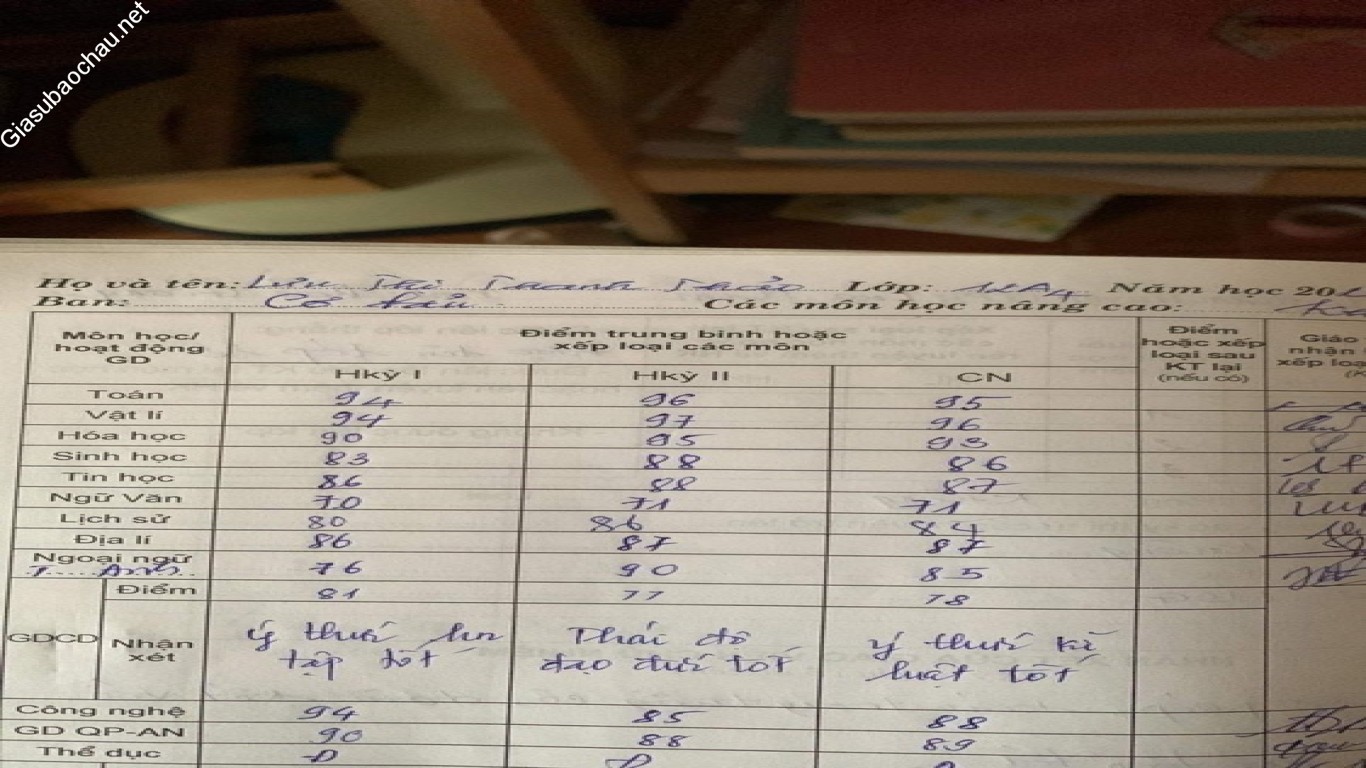 Giasubaochau.net
Họ và tên: Lưu Thị Thanh Thảo Lớp: 12A4 Năm học 20
Ban: Cơ bản Các môn học nâng cao:
Môn học/ hoạt động GD
Điểm trung bình hoặc xếp loại các môn
Điểm hoặc xếp loại sau KT lại (nếu có)
Giáo
nhận
xếp loại
Hkỳ I Hkỳ II CN
Toán 94 96 95
Vật lí 94 97 96
Hóa học 90 95 93
Sinh học 83 88 86
Tin học 86 88 87
Ngữ Văn 70 71 71
Lịch sử 80 86 84
Địa lí 86 87 87
Ngoại ngữ
T. Anh 76 90 85
GDCD Điểm 81 77 78
Nhận xét
ý thức
tập tốt
Thái độ
đạo đức tốt
ý thức kỉ
luật tốt
Công nghệ 94 85 88
GD QP-AN 90 88 89
Thể dục Đ Đ